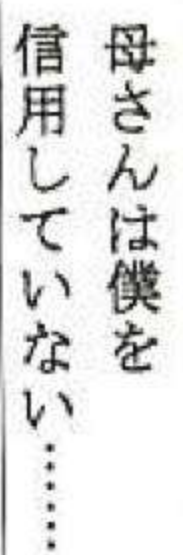 母さんは僕を
信用していない……